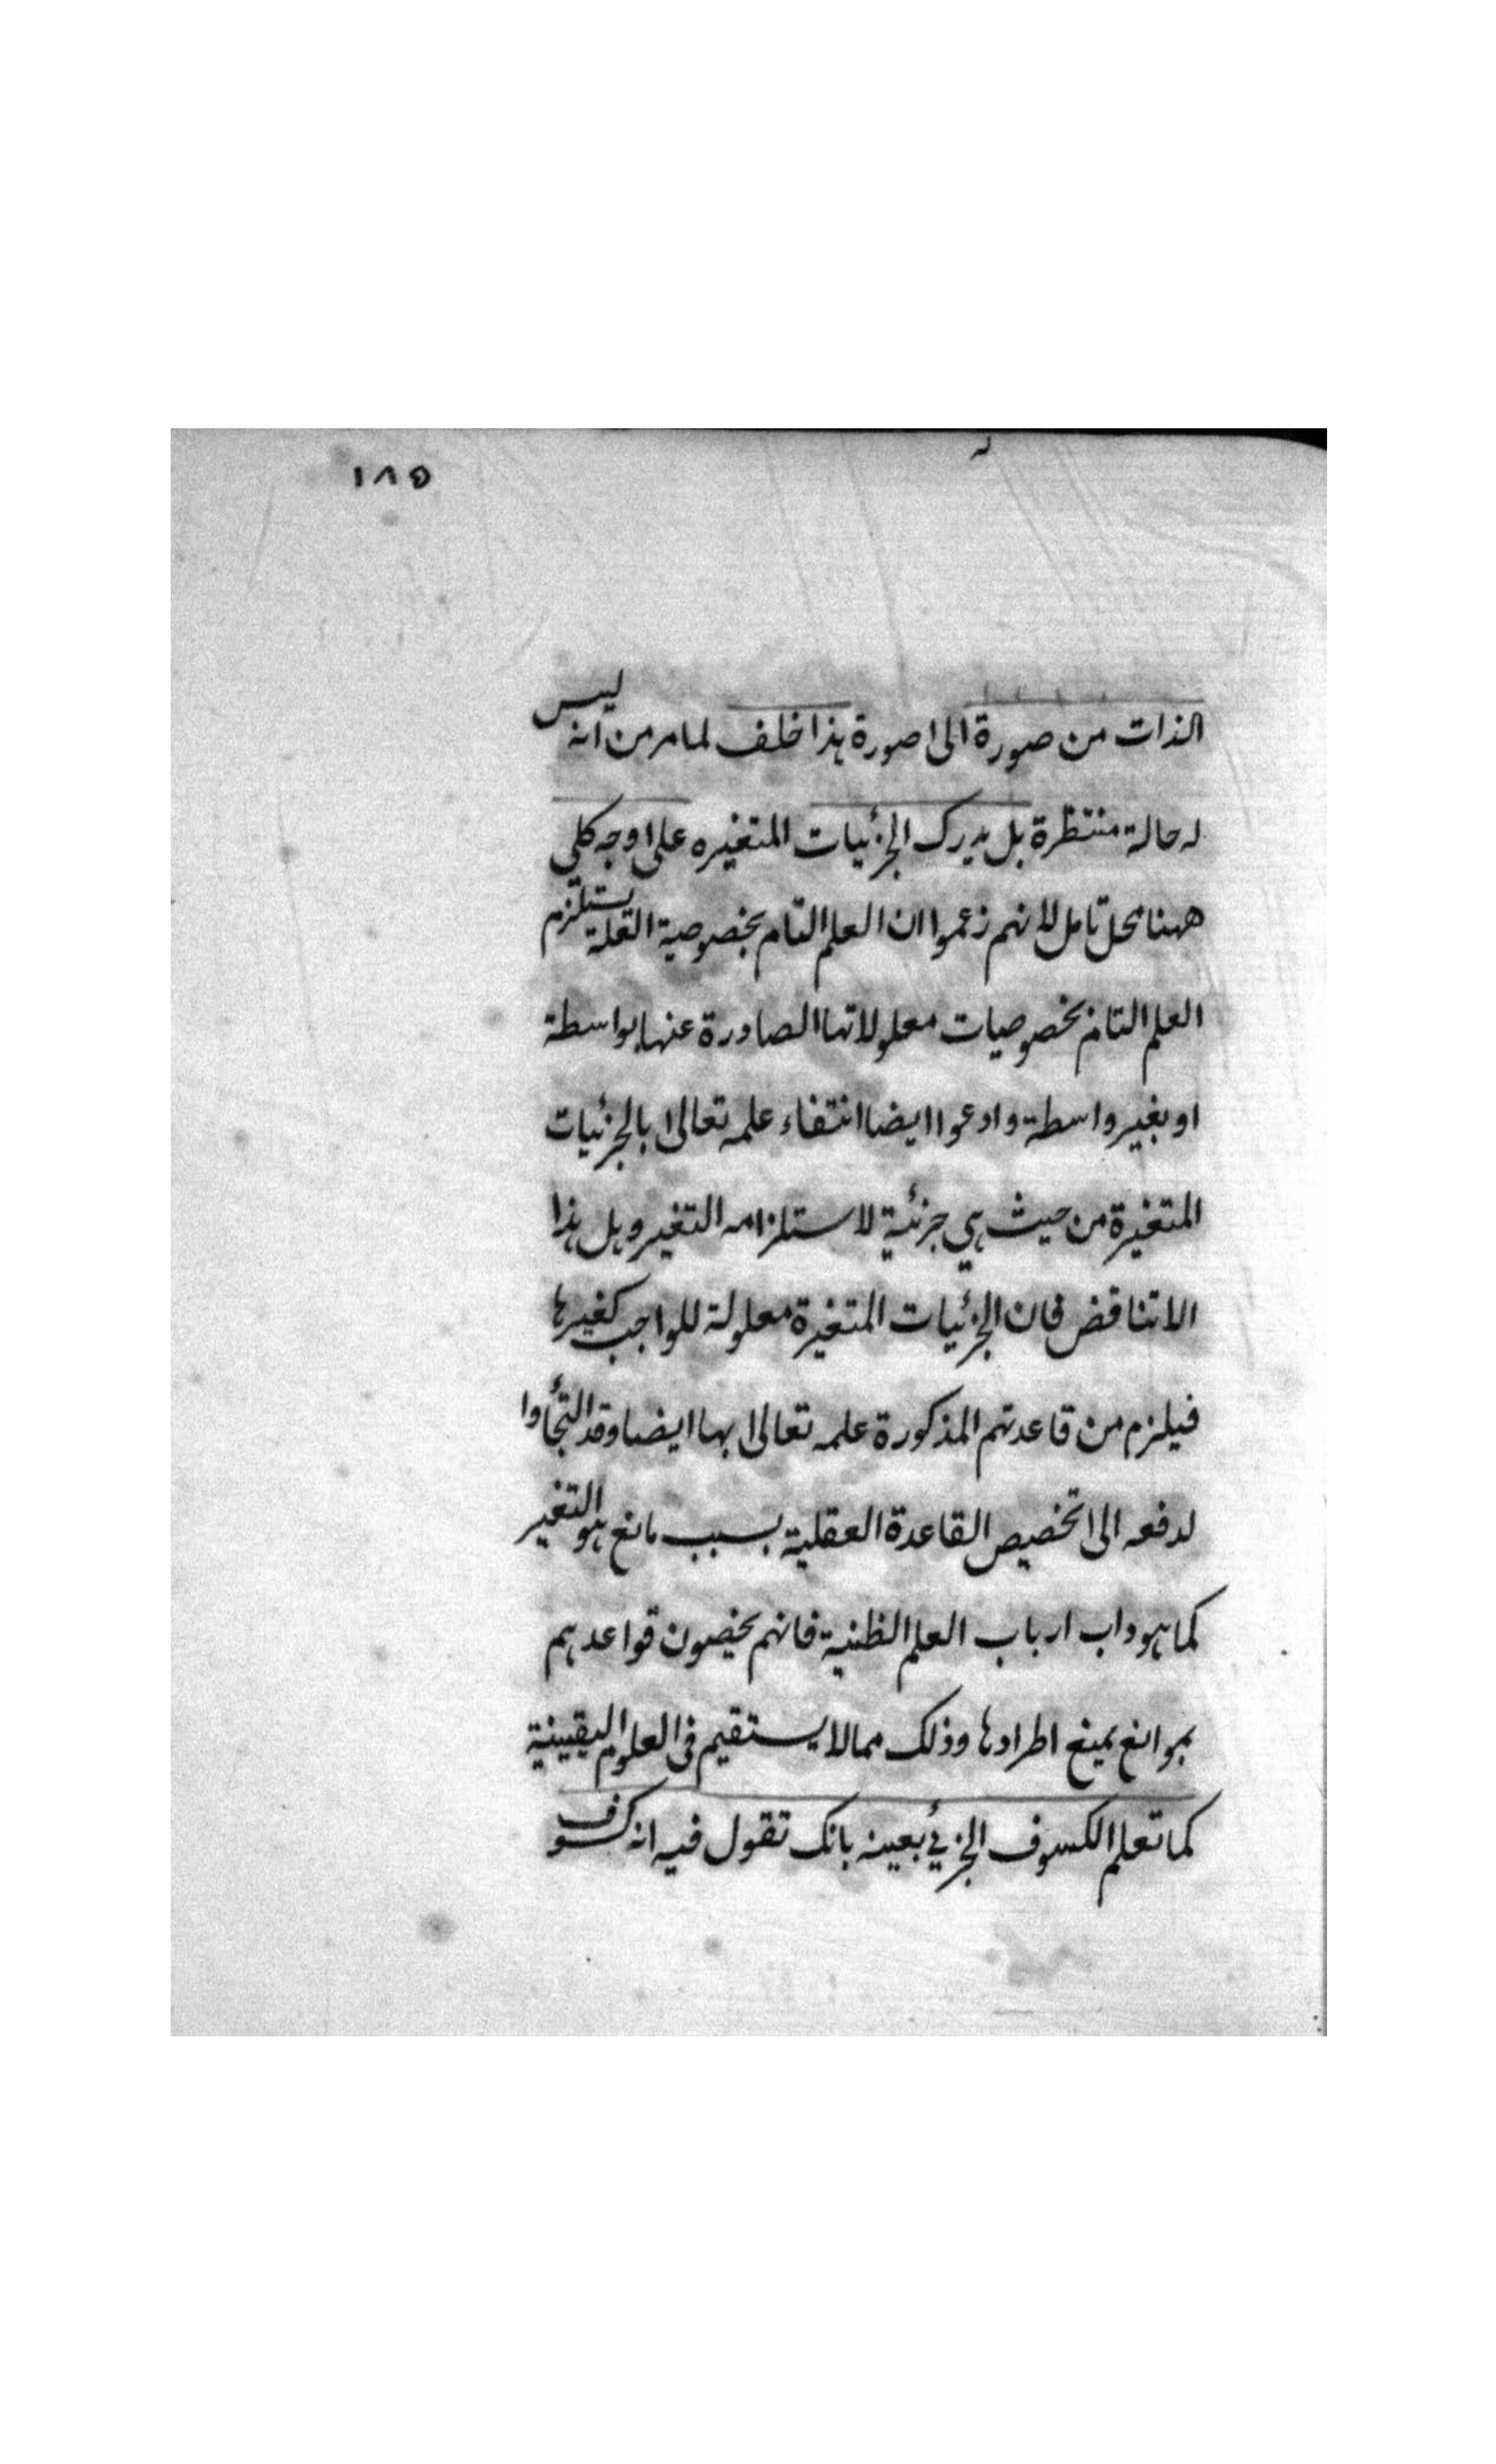 ١٨٥
الذات من صورة الى صورة هذا خلف لما مر من انه ليس
له حالة منتظرة بل يدرك الجزئيات المتغيره على وجه كلي
ههنا محل تامل لانهم زعموا ان العلم التام بخصوصية العلة يستلزم
العلم التام بخصوصيات معلولاتها الصادرة عنها بواسطة
او بغير واسطة وادعوا ايضا انتفاء علمه تعالى بالجزئيات
المتغيرة من حيث هي جزئية لاستلزامه التغير وهل هذا
الا تناقض فان الجزئيات المتغيرة معلولة للواجب كغيرها
فيلزم من قاعدتهم المذكورة علمه تعالى بها ايضا وقد التجأوا
لدفعه الى تخصيص القاعدة العقلية بسبب مانع هو التغير
كما هو داب ارباب العلم الظنية فانهم يخصون قواعدهم
بموانع يمنع اطرادها وذلك مما لا يستقيم في العلوم اليقينية
كما تعلم الكسوف الجزئي بعينه بانك تقول فيه انه كسوف